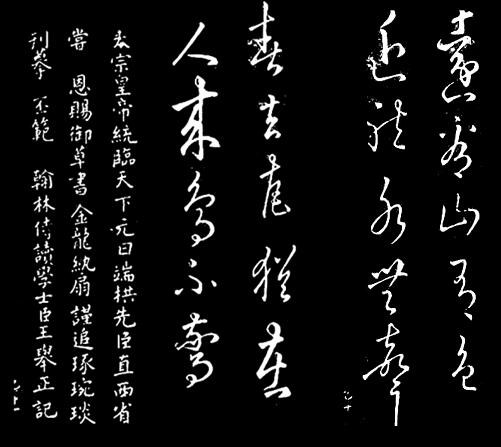 遠看山有色
近聽水無聲
春去花猶在
人來鳥不驚
太宗皇帝統臨天下元曰端拱先臣直西省
嘗 恩賜御草書金龍紈扇謹追琢琬琰
刊摹 丕範 翰林侍讀學士臣王舉正記